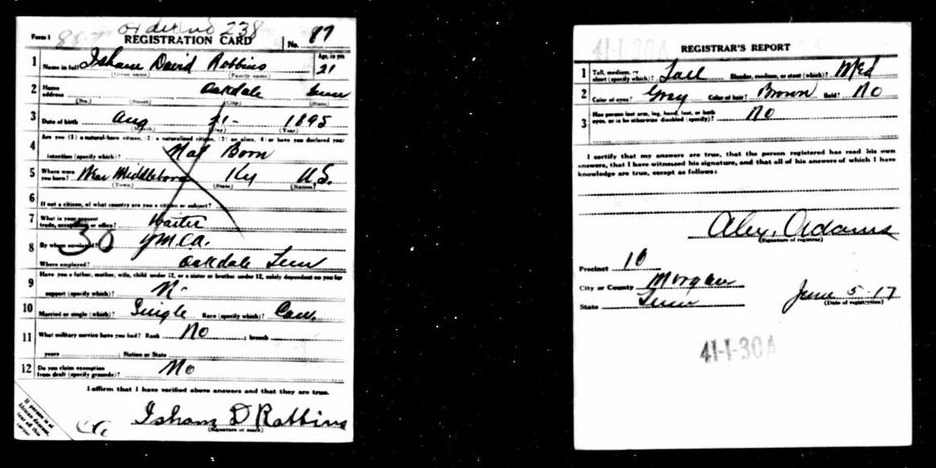 order no 238
Form 1 REGISTRATION CARD No. 87
1 Name in full Isham David Robbins Age, in yrs. 21
(Given name) (Family name)
2 Home address Oakdale Tenn
(No.) (Street) (City) (State)
3 Date of birth Aug 21- 1895
(Month) (Day) (Year)
Are you (1) a natural-born citizen, (2) a naturalized citizen, (3) an alien, (4) or have you declared your
4 intention (specify which)? Nat Born
5 Where were you born? Near Middleboro Ky U.S.
(Town) (State) (Nation)
6 If not a citizen, of what country are you a citizen or subject?
7 What is your present trade, occupation or office? Waiter
30
8 By whom employed? YMCA.
Where employed? Oakdale Tenn
9 Have you a father, mother, wife, child under 12, or a sister or brother under 12, solely dependent on you for
support (specify which)?
10 Married or single (which)? Single Race (specify which)? Cau.
11 What military service have you had? Rank No ; branch
years ; Nation or State
12 Do you claim exemption from draft (specify grounds)? No
I affirm that I have verified above answers and that they are true.
Isham D Robbins
(Signature or mark)
41-1-30A
REGISTRAR'S REPORT
1 Tall, medium, or short (specify which)? Tall Slender, medium, or stout (which)? Med
2 Color of eyes? Gray Color of hair? Brown Bald? No
3 Has person lost arm, leg, hand, foot, or both eyes, or is he otherwise disabled (specify)? No
I certify that my answers are true, that the person registered has read his own
answers, that I have witnessed his signature, and that all of his answers of which I have
knowledge are true, except as follows:
Alex. Adams
(Signature of registrar)
Precinct 10
City or County Morgan
State Tenn June 5-17
(Date of registration)
41-1-30A